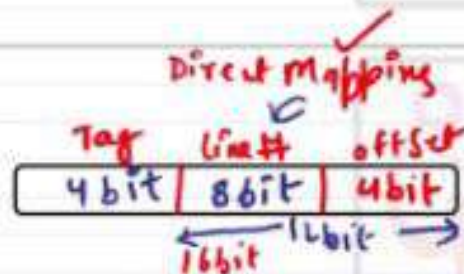 Direct Mapping
Tag Line# offset
4bit 8bit 4bit
12bit
16bit